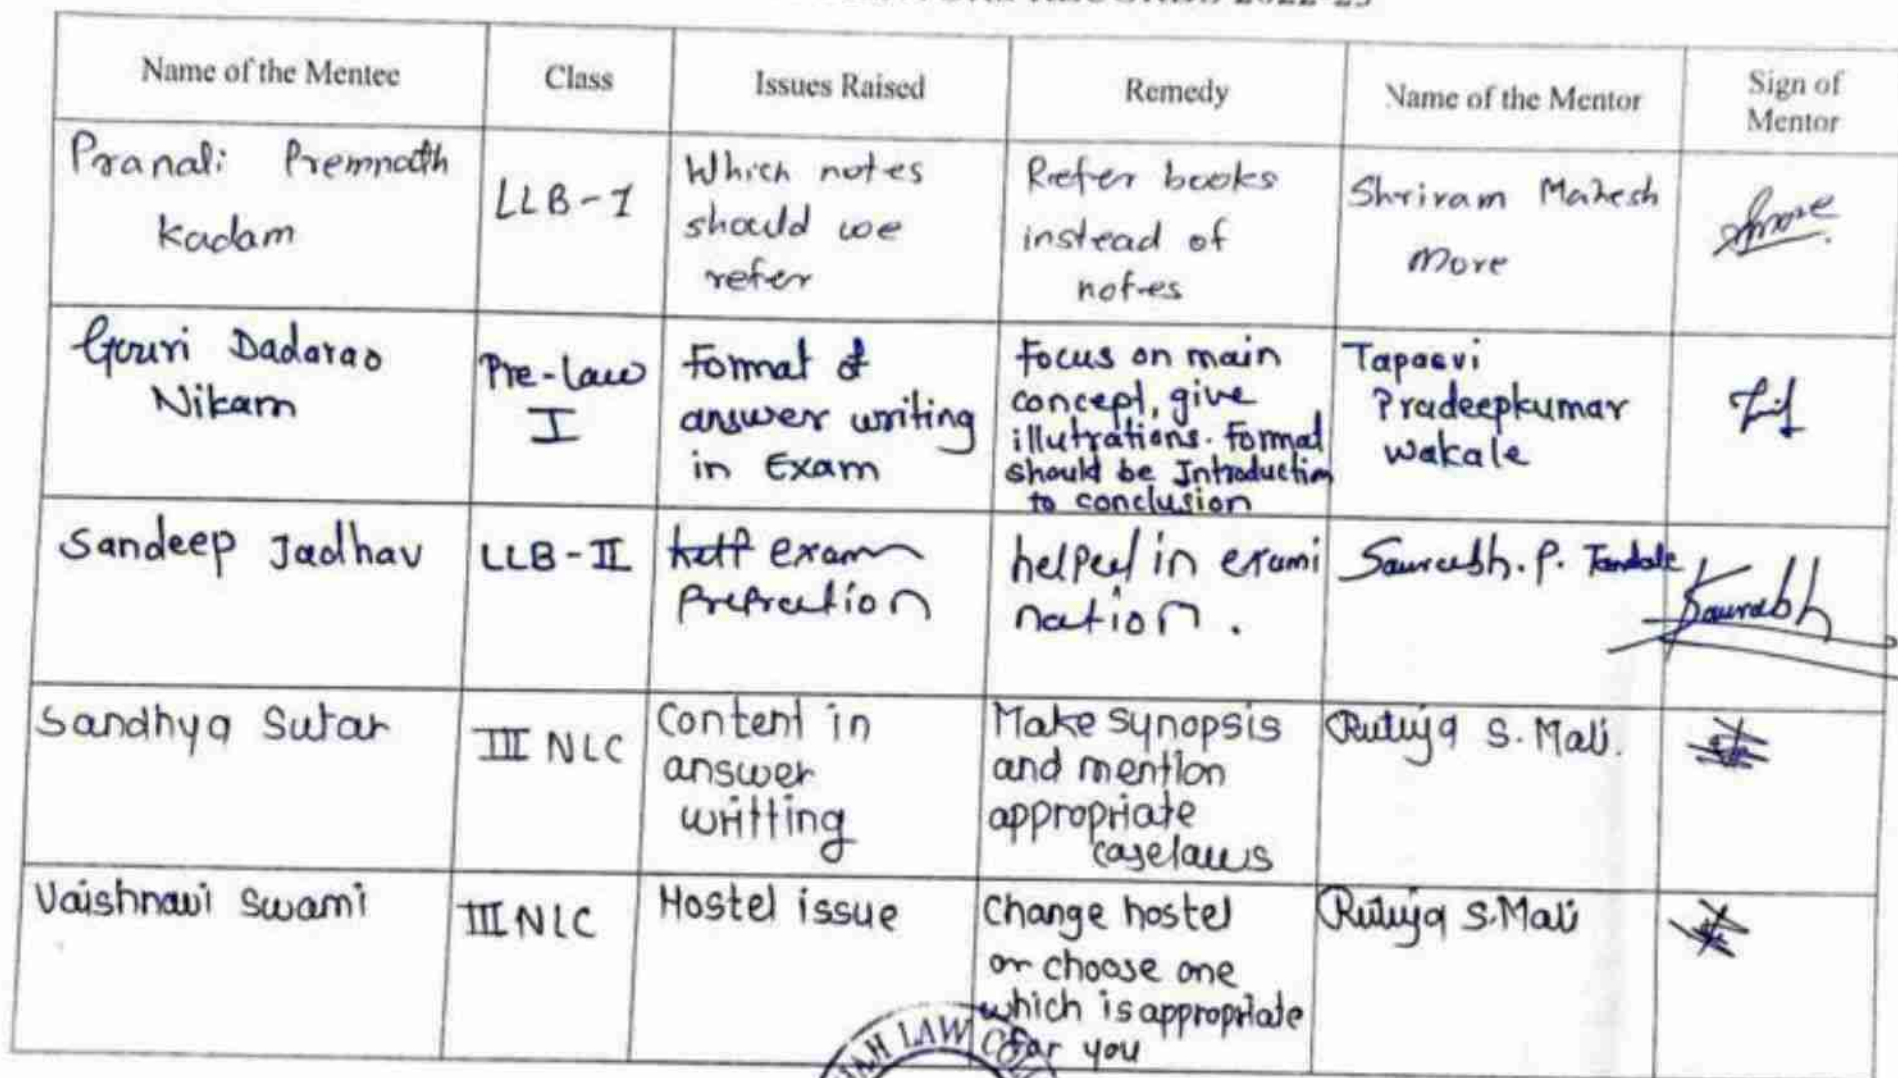 RECORDS 2022-23
Name of the Mentee Class Issues Raised Remedy Name of the Mentor Sign of Mentor
Pranali Premnath
Kadam
LLB-I
Which notes
should we
refer
Refer books
instead of
notes
Shriram Mahesh
More
Gouri Dadarao
Nikam
Pre-Law
I
Format of
answer writing
in Exam
Focus on main
concept, give
illutrations. Format
should be Introduction
to conclusion
Tapasvi
Pradeepkumar
Wakale
Sandeep Jadhav
LLB-II
exam
Prepration
helped in exami
nation.
Saurabh. P. Tandale
Saurabh
Sandhya Sutar
III NLC
Content in
answer
writting
Make synopsis
and mention
appropriate
caselaws
Rutuja S. Mali.
Vaishnavi Swami
III NLC
Hostel issue
Change hostel
or choose one
which is appropriate
for you
Rutuja S. Mali
LAW